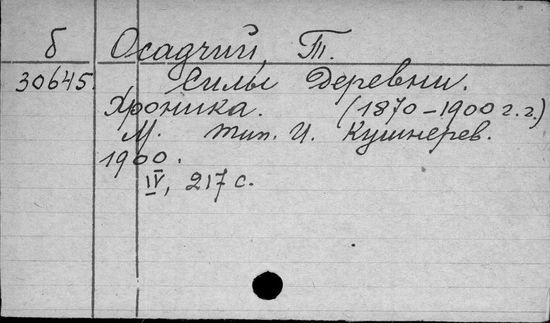 б Осадчий, Т.
30645. Силы Деревни.
Хроника. (1870-1900 г.г.)
М. тип. И. Кушнерев.
1900.
IV, 217 с.